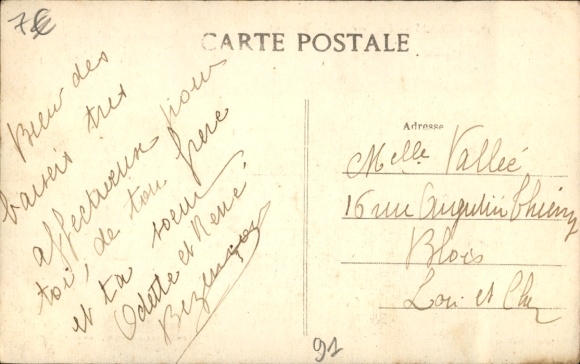 7€
CARTE POSTALE
Bien des
baisers très
affectueux pour
toi, de ton frere
et ta soeur
Odette et René
Adresse
Melle Vallée
16 rue Augustin Thierry
Blois
Loir et Cher
91